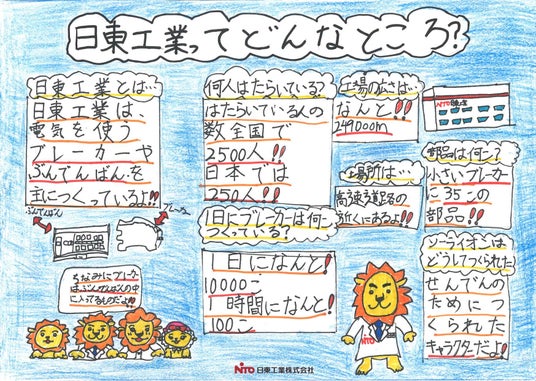 日東工業ってどんなところ?
日東工業とは…
日東工業は、
電気を使う
ブレーカーや
ぶんでんばんを
主につくっているよ!!
ぶんでんばん
ブレーカー
ちなみにブレーカー
はぶんでんばんの中
に入ってるんだよ!!
何人はたらいている?
はたらいている人の
数全国で
2500人!!
日本では
250人!!
1日にブレーカーは何こ
つくっている?
1日になんと!
10000こ
1時間になんと!
100こ
工場の広さは…
なんと!!
249000m
工場場所は…
高速道路の
近くにあるよ!!
NITO
部品は何こ?
小さいブレーカー
こ35この
部品!!
ソーライオンは
どうしてつくられた?
せんでんの
ためにつ
くられた
キャラクターだよ!
NITO
NITO 日東工業株式会社